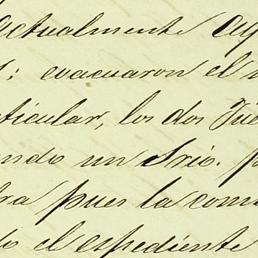 actualmente
evacuaron el
ticular, los dos Jue
endo un Srio. p
ra pues la com
do el expediente